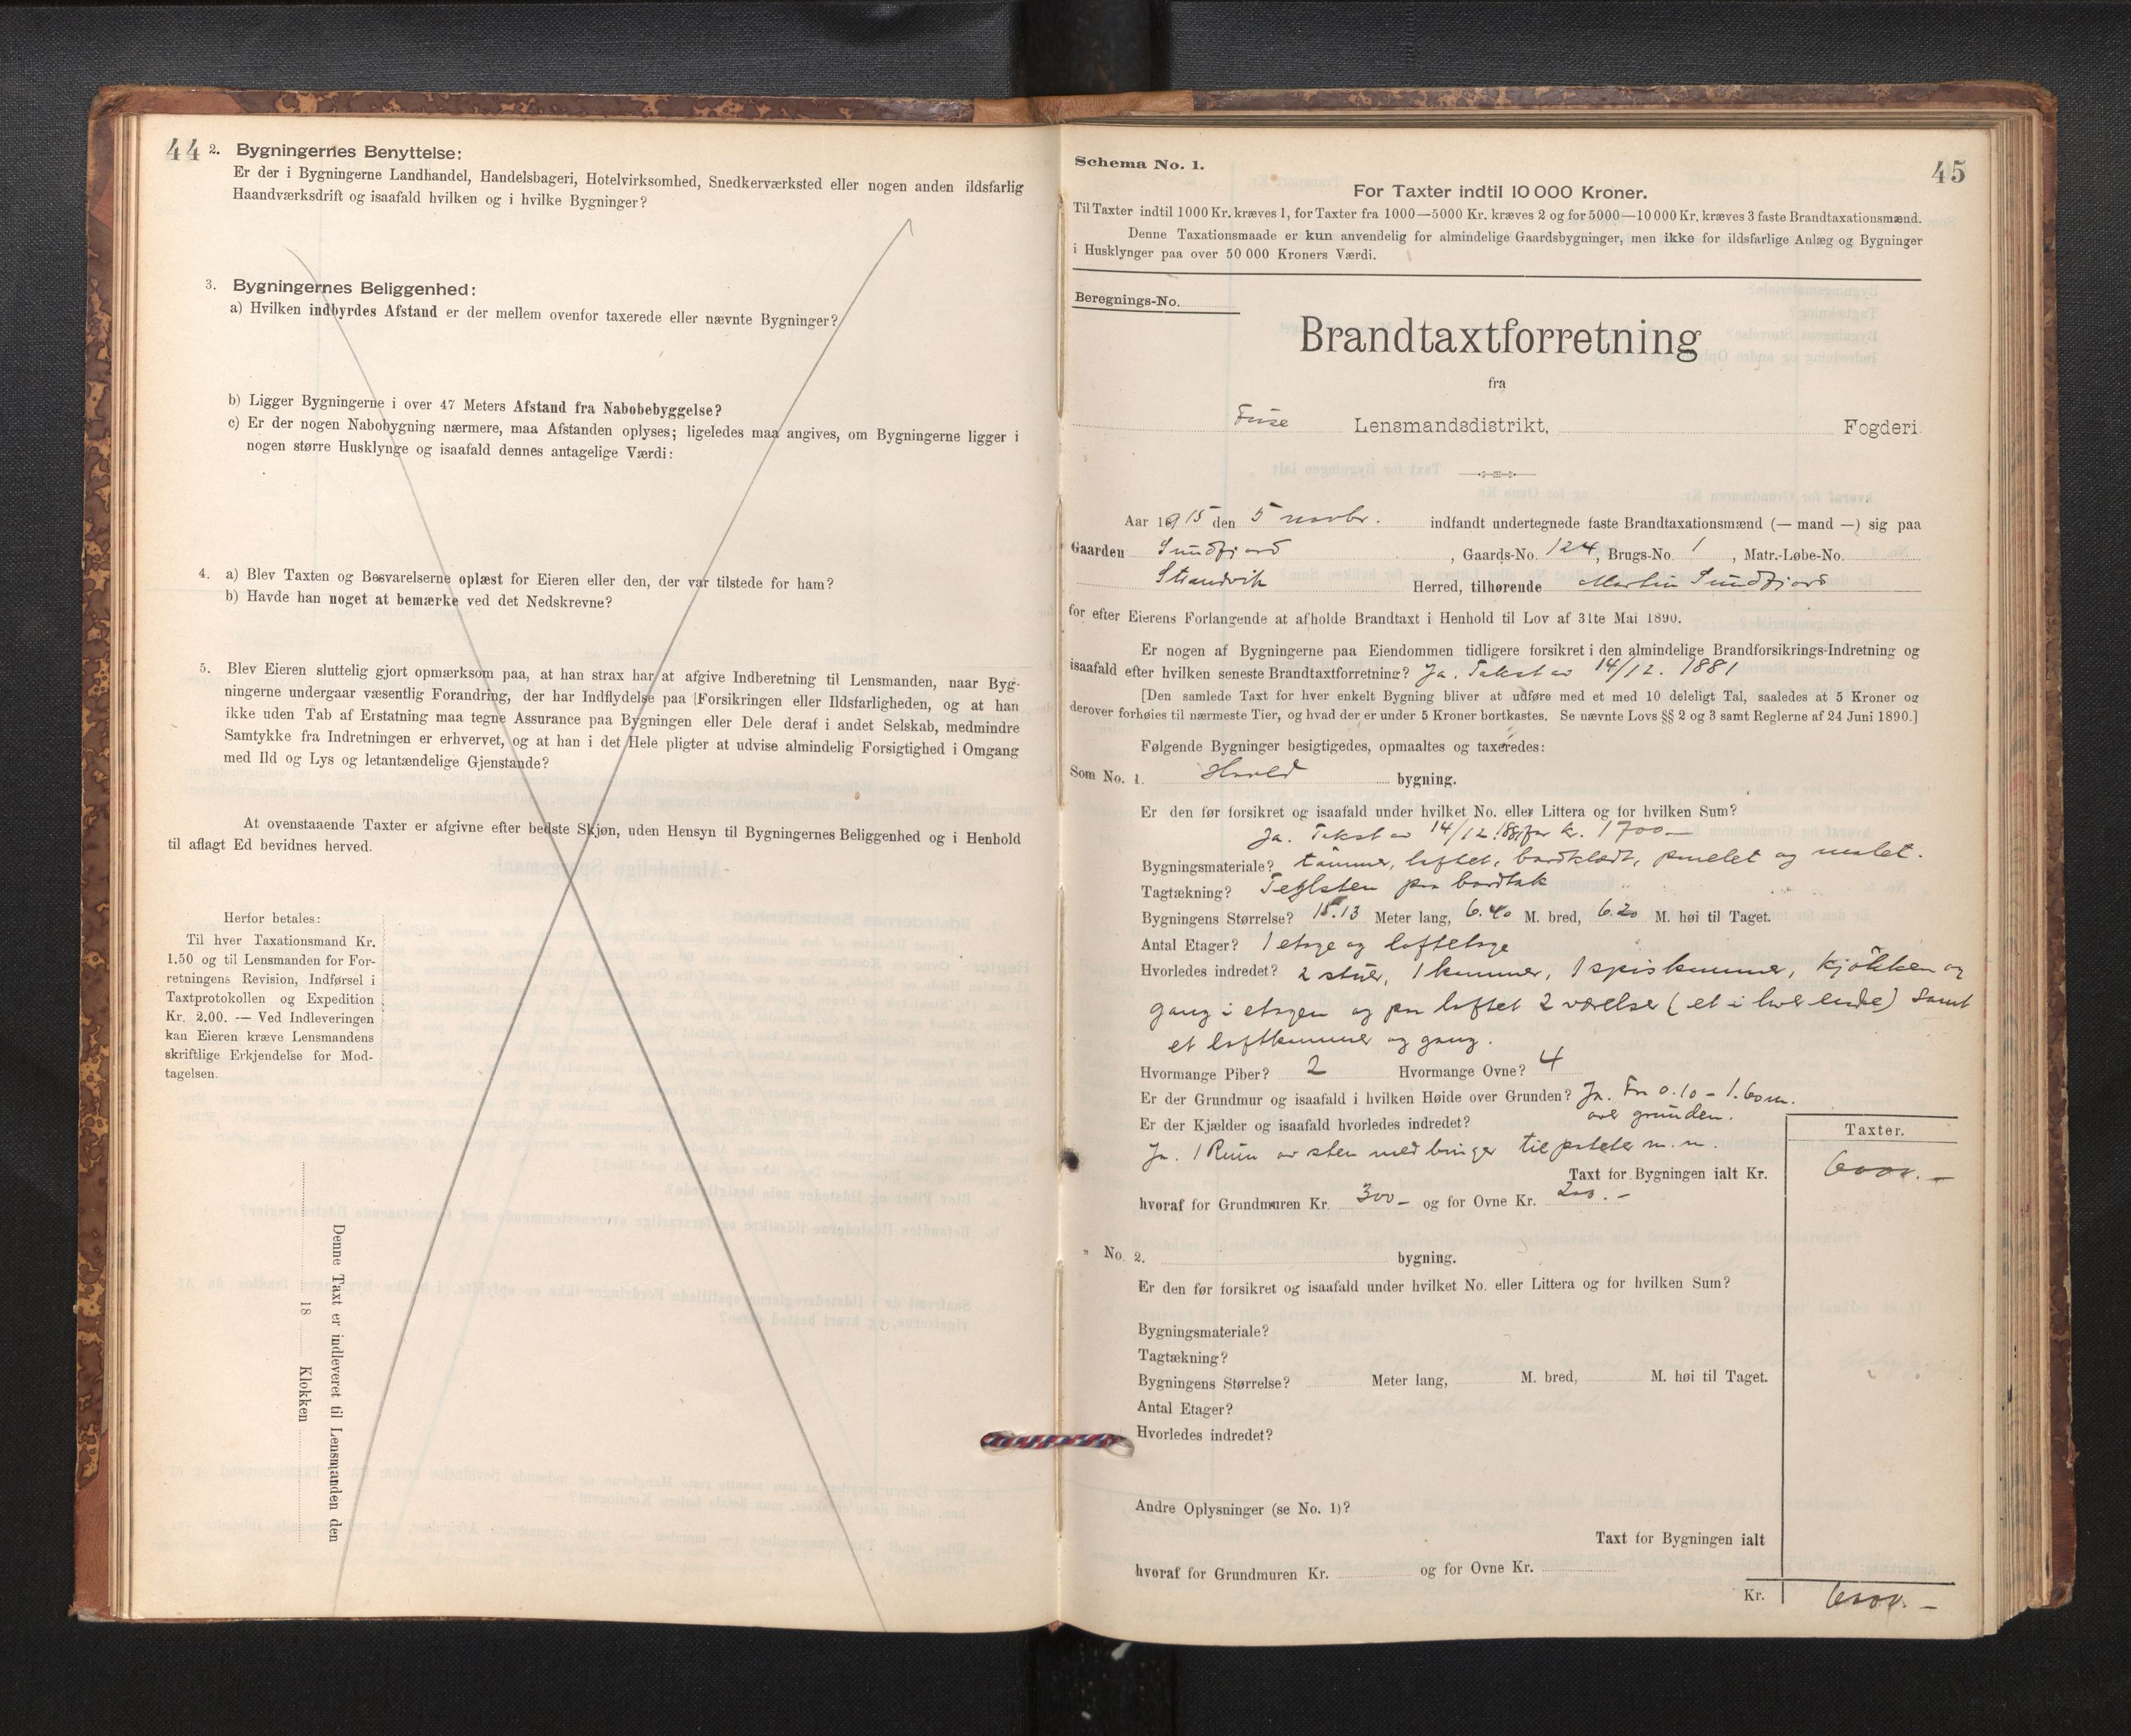 44
2. Bygningernes Benyttelse:
Er der i Bygningerne Landhandel, Handelsbageri, Hotelvirksomhed, Snedkerværksted eller nogen anden ildsfarlig
Haandværksdrift og isaafald hvilken og i hvilke Bygninger?
3. Bygningernes Beliggenhed:
a) Hvilken indbyrdes Afstand er der mellem ovenfor taxerede eller nævnte Bygninger?
b) Ligger Bygningerne i over 47 Meters Afstand fra Nabobebyggelse?
c) Er der nogen Nabobygning nærmere, maa Afstanden oplyses; ligeledes maa angives, om Bygningerne ligger i
nogen større Husklynge og isaafald dennes antagelige Værdi:
4. a) Blev Taxten og Besvarelserne oplæst for Eieren eller den, der var tilstede for ham?
b) Havde han noget at bemærke ved det Nedskrevne?
5. Blev Eieren sluttelig gjort opmærksom paa, at han strax har at afgive Indberetning til Lensmanden, naar Byg-
ningerne undergaar væsentlig Forandring, der har Indflydelse paa Forsikringen eller Ildsfarligheden, og at han
ikke uden Tab af Erstatning maa tegne Assurance paa Bygningen eller Dele deraf i andet Selskab, medmindre
Samtykke fra Indretningen er erhvervet, og at han i det Hele pligter at udvise almindelig Forsigtighed i Omgang
med Ild og Lys og letantændelige Gjenstande?
At ovenstaaende Taxter er afgivne efter bedste Skjøn, uden Hensyn til Bygningernes Beliggenhed og i Henhold
til aflagt Ed bevidnes herved.
Herfor betales:
Til hver Taxationsmand Kr.
1.50 og til Lensmanden for For-
retningens Revision, Indførsel i
Taxtprotokollen og Expedition
Kr. 2.00. — Ved Indleveringen
kan Eieren kræve Lensmandens
skriftlige Erkjendelse for Mod-
tagelsen.
Denne Taxt er indleveret til Lensmanden den
18 Klokken
45
Schema No. 1.
For Taxter indtil 10 000 Kroner.
Til Taxter indtil 1000 Kr. kræves 1, for Taxter fra 1000—5000 Kr. kræves 2 og for 5000—10 000 Kr. kræves 3 faste Brandtaxationsmænd.
Denne Taxationsmaade er kun anvendelig for almindelige Gaardsbygninger, men ikke for ildsfarlige Anlæg og Bygninger
i Husklynger paa over 50 000 Kroners Værdi.
Beregnings-No.
Brandtaxtforretning
fra
Fuse Lensmandsdistrikt, Fogderi
Aar 1915 den 5 novbr. indfandt undertegnede faste Brandtaxationsmænd (— mand —) sig paa
Gaarden Sundfjord, Gaards-No. 124, Brugs-No. 1, Matr.-Løbe-No.
Strandvik Herred, tilhørende Martin Sundfjord
for efter Eierens Forlangende at afholde Brandtaxt i Henhold til Lov af 31te Mai 1890.
Er nogen af Bygningerne paa Eiendommen tidligere forsikret i den almindelige Brandforsikrings-Indretning og
isaafald efter hvilken seneste Brandtaxtforretning? Ja. Takst av 14/12. 1881
[Den samlede Taxt for hver enkelt Bygning bliver at udføre med et med 10 deleligt Tal, saaledes at 5 Kroner og
derover forhøies til nærmeste Tier, og hvad der er under 5 Kroner bortkastes. Se nævnte Lovs §§ 2 og 3 samt Reglerne af 24 Juni 1890.]
Følgende Bygninger besigtigedes, opmaaltes og taxeredes:
Som No. 1. bygning.
Er den før forsikret og isaafald under hvilket No. eller Littera og for hvilken Sum?
Ja. Takst av 14/12. 1881 for kr. 1700 —
Bygningsmateriale? tømmer, loftet, bordklædt, panelet og malet.
Tagtækning? Teglsten paa bordtak
Bygningens Størrelse? 15.13 Meter lang, 6.40 M. bred, 6.20 M. høi til Taget.
Antal Etager? 1 etage og loftetage
Hvorledes indredet? 2 stuer, 1 kammer, 1 spiskammer, kjøkken og
gang i etagen og paa loftet 2 værelser (et i hver ende) samt
et loftkammer og gang.
Hvormange Piber? 2 Hvormange Ovne? 4
Er der Grundmur og isaafald i hvilken Høide over Grunden? Ja. Fra 0.10 - 1.60 m.
over grunden.
Er der Kjælder og isaafald hvorledes indredet?
Ja. 1 Rum av sten med binger til poteter m. m.
Taxter.
Taxt for Bygningen ialt Kr. 6000. —
hvoraf for Grundmuren Kr. 300 — og for Ovne Kr. 200. —
" No. 2. bygning.
Er den før forsikret og isaafald under hvilket No. eller Littera og for hvilken Sum?
Bygningsmateriale?
Tagtækning?
Bygningens Størrelse? Meter lang, M. bred, M. høi til Taget.
Antal Etager?
Hvorledes indredet?
Andre Oplysninger (se No. 1)?
Taxt for Bygningen ialt
hvoraf for Grundmuren Kr. og for Ovne Kr.
Kr. 6000. —